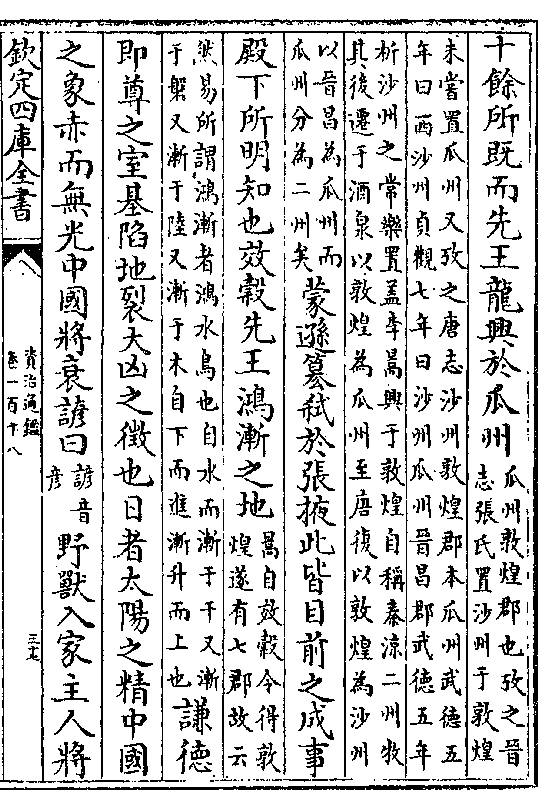 十餘所既而先王龍興於瓜州瓜州敦煌郡也攷之晉志張氏置沙州于敦煌
未嘗置瓜州又攷之唐志沙州敦煌郡本瓜州武德五年曰西沙州貞觀七年曰沙州瓜州晉昌郡武德五年
析沙州之常樂置蓋李暠興于敦煌自稱秦涼二州牧其後遷于酒泉以敦煌為瓜州至唐復以敦煌為沙州
以晉昌為瓜州而瓜州分為二州矣蒙遜篡弑於張掖此皆目前之成事
殿下所明知也效穀先王鴻漸之地暠自效穀令得敦煌遂有七郡故云
然易所謂鴻漸者鴻水鳥也自水而漸于干又漸于磐又漸于陸又漸于木自下而進漸升而上也謙德
即尊之室基陷地裂大凶之徵也日者太陽之精中國
之象赤而無光中國將衰諺曰諺音彥野獸入家主人將
欽定四庫全書
資治通鑑
卷一百十八
三十七